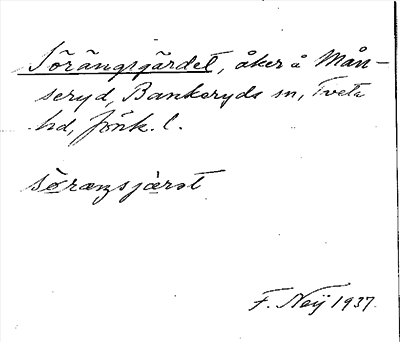 Sörängsgärdet, åker å Mån-
seryd, Bankeryds sn, Tveta
hd, Jönk. l.
söraŋsjærət
F. Neij 1937.